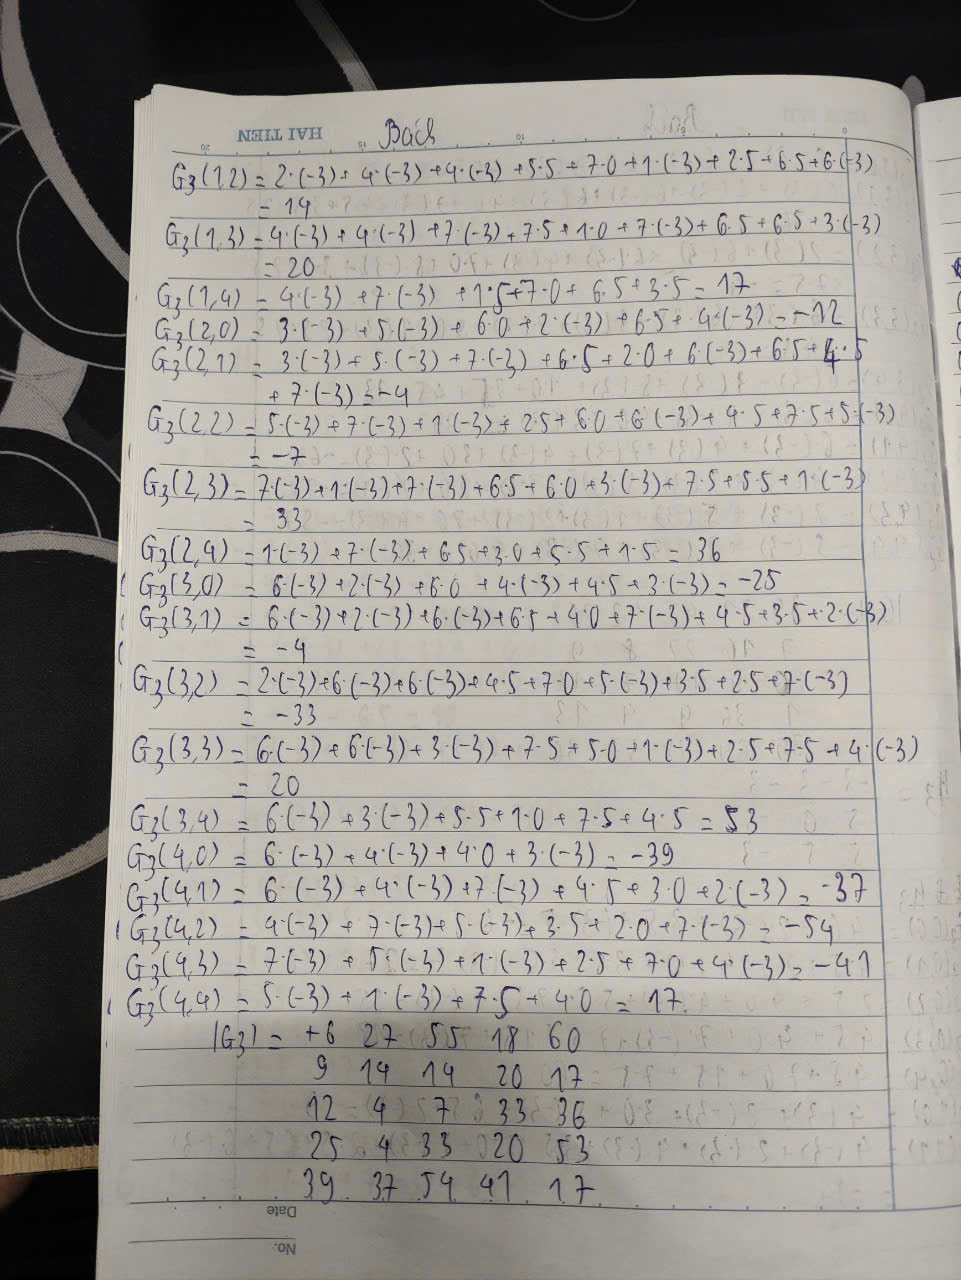 HẢI TIẾN Bách
G3(1,2) = 2·(-3) + 4·(-3) + 4·(-3) + 5·5 + 7·0 + 1·(-3) + 2·5 + 6·5 + 6·(-3)
= 14
G3(1,3) = 4·(-3) + 4·(-3) + 7·(-3) + 7·5 + 1·0 + 7·(-3) + 6·5 + 6·5 + 3·(-3)
= 20
G3(1,4) = 4·(-3) + 7·(-3) + 1·5 + 7·0 + 6·5 + 3·5 = 17
G3(2,0) = 3·(-3) + 5·(-3) + 6·0 + 2·(-3) + 6·5 + 4·(-3) = -12
G3(2,1) = 3·(-3) + 5·(-3) + 7·(-3) + 6·5 + 2·0 + 6·(-3) + 6·5 + 4·5
+ 7·(-3) = -4
G3(2,2) = 5·(-3) + 7·(-3) + 1·(-3) + 2·5 + 6·0 + 6·(-3) + 4·5 + 7·5 + 5·(-3)
= -7
G3(2,3) = 7·(-3) + 1·(-3) + 7·(-3) + 6·5 + 6·0 + 3·(-3) + 7·5 + 5·5 + 1·(-3)
= 33
G3(2,4) = 1·(-3) + 7·(-3) + 6·5 + 3·0 + 5·5 + 1·5 = 36
G3(3,0) = 6·(-3) + 2·(-3) + 6·0 + 4·(-3) + 4·5 + 3·(-3) = -25
G3(3,1) = 6·(-3) + 2·(-3) + 6·(-3) + 6·5 + 4·0 + 7·(-3) + 4·5 + 3·5 + 2·(-3)
= -4
G3(3,2) = 2·(-3) + 6·(-3) + 6·(-3) + 4·5 + 7·0 + 5·(-3) + 3·5 + 2·5 + 7·(-3)
= -33
G3(3,3) = 6·(-3) + 6·(-3) + 3·(-3) + 7·5 + 5·0 + 1·(-3) + 2·5 + 7·5 + 4·(-3)
= 20
G3(3,4) = 6·(-3) + 3·(-3) + 5·5 + 1·0 + 7·5 + 4·5 = 53
G3(4,0) = 6·(-3) + 4·(-3) + 4·0 + 3·(-3) = -39
G3(4,1) = 6·(-3) + 4·(-3) + 7·(-3) + 4·5 + 3·0 + 2·(-3) = -37
G3(4,2) = 4·(-3) + 7·(-3) + 5·(-3) + 3·5 + 2·0 + 7·(-3) = -54
G3(4,3) = 7·(-3) + 5·(-3) + 1·(-3) + 2·5 + 7·0 + 4·(-3) = -41
G3(4,4) = 5·(-3) + 1·(-3) + 7·5 + 4·0 = 17
|G3| = +6 27 55 18 60
9 14 14 20 17
12 4 7 33 36
25 4 33 20 53
39 37 54 41 17
Date
No.